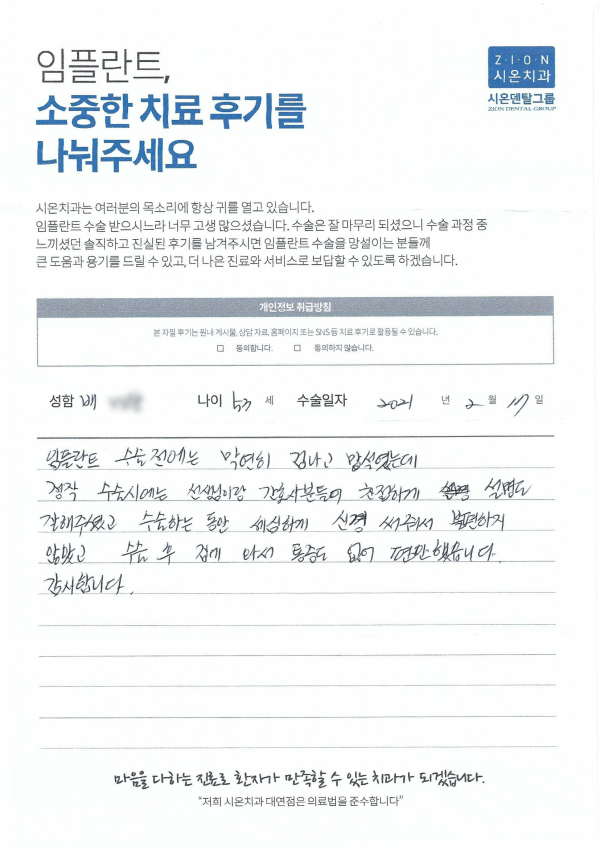 임플란트,
소중한 치료 후기를
나눠주세요
Z·I·O·N
시온치과
시온덴탈그룹
ZION DENTAL GROUP
시온치과는 여러분의 목소리에 항상 귀를 열고 있습니다.
임플란트 수술 받으시느라 너무 고생 많으셨습니다. 수술은 잘 마무리 되셨으니 수술 과정 중
느끼셨던 솔직하고 진실된 후기를 남겨주시면 임플란트 수술을 망설이는 분들께
큰 도움과 용기를 드릴 수 있고, 더 나은 진료와 서비스로 보답할 수 있도록 하겠습니다.
개인정보 취급방침
본 자필 후기는 원내 게시물, 상담 자료, 홈페이지 또는 SNS 등 치료 후기로 활용될 수 있습니다.
☐ 동의합니다. ☐ 동의하지 않습니다.
성함 배 나이 53 세 수술일자 2021 년 2 월 17 일
임플란트 수술 전에는 막연히 겁나고 망설였는데
정작 수술시에는 선생님이랑 간호사분들이 친절하게 설명도
잘해주셨고 수술하는 동안 세심하게 신경 써주셔서 불편하지
않았고 수술 후 집에 와서 통증도 없어 편안했습니다.
감사합니다.
마음을 다하는 진료로 환자가 만족할 수 있는 치과가 되겠습니다.
“저희 시온치과 대연점은 의료법을 준수합니다”